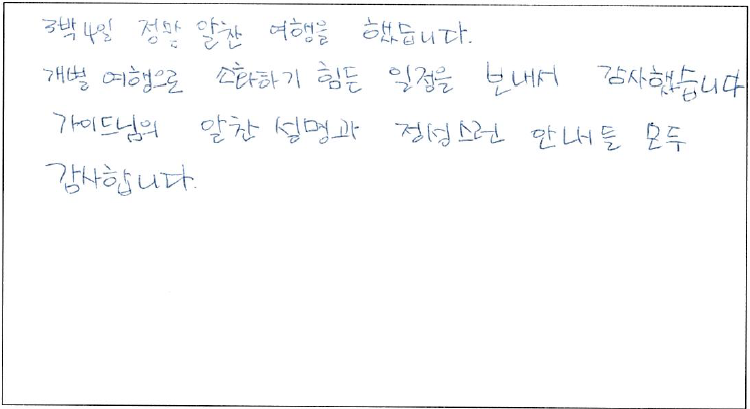 3박4일 정말 알찬 여행을 했습니다.
개별 여행으로 소화하기 힘든 일정을 보내서 감사했습니다
가이드님의 알찬 설명과 정성스런 안내들 모두
감사합니다.